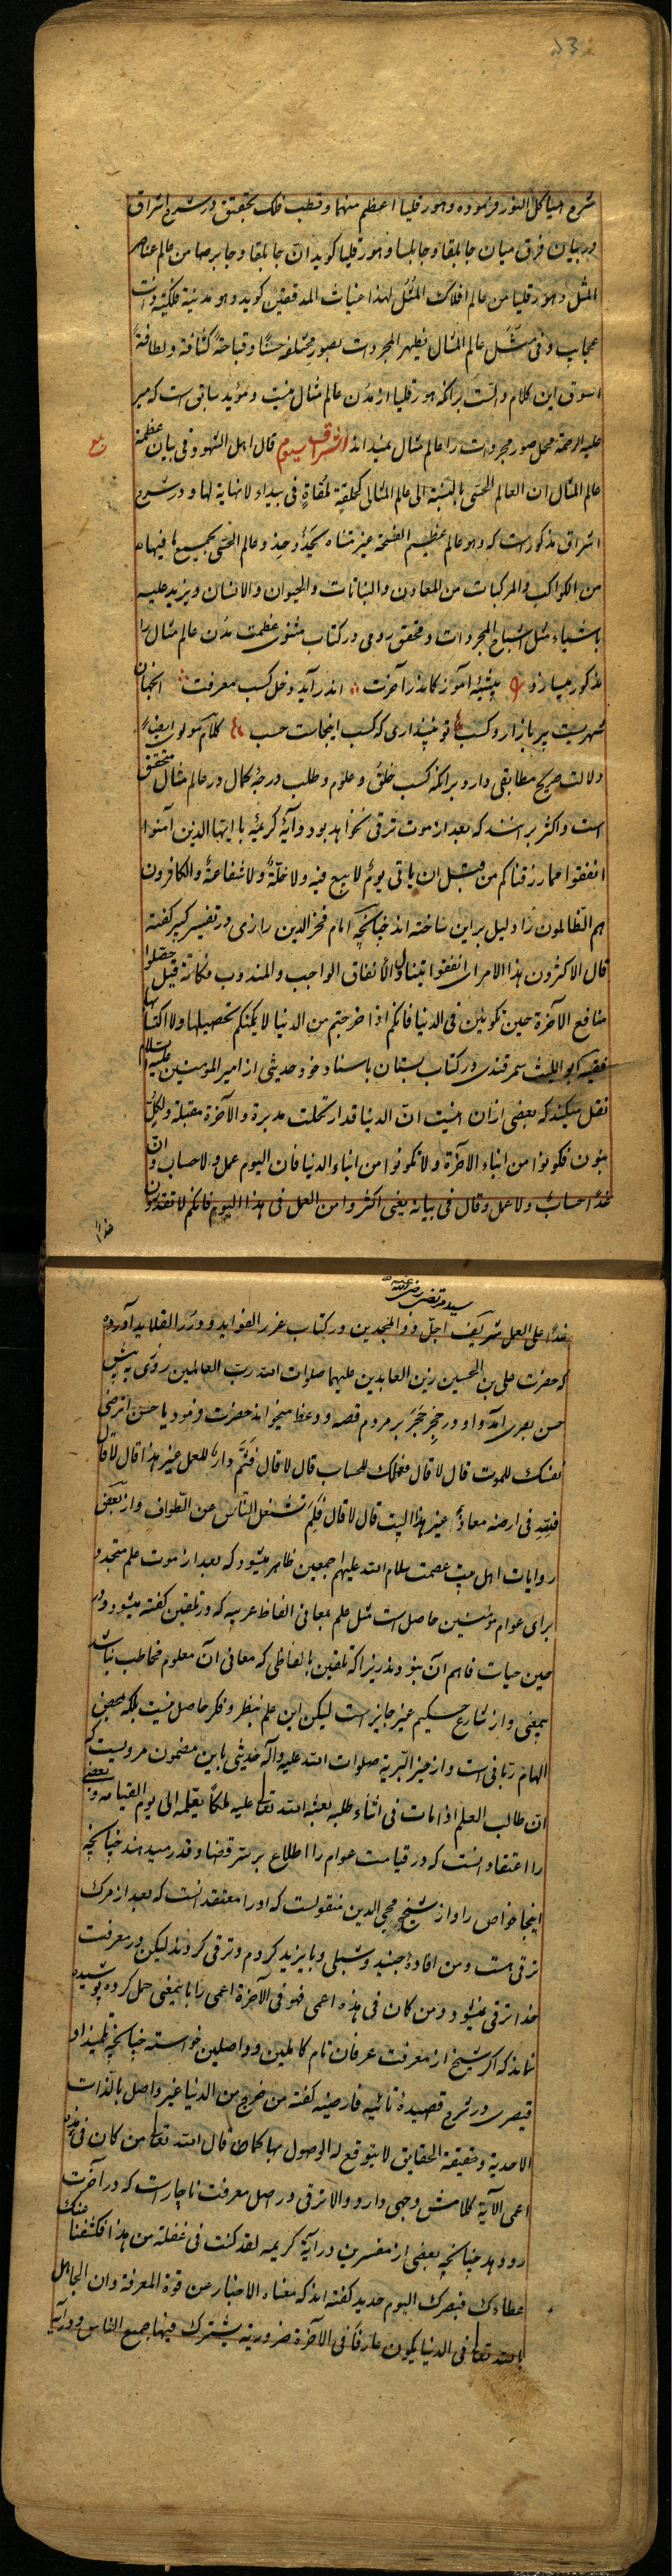 شرح هیاکل النور فرموده وهورقلیا اعظم منهما وقطب فلک تحقیق در شرح اشراق
در بیان فرق میان جابلقا وجابلسا وهورقلیا کوید ان جابلقا وجابرصا من عالم عناصر
المثل وهورقلیا من عالم افلاک المثل لهذا غیاث المدققین کوید وهو مدینة فلکیة ذات
عجایب وفی مثل عالم المثال یظهر المجردات بصور مختلفه حسنا وقباحة کثافة ولطافة
سوق این کلام دالست برانکه هورقلیا از مدن عالم مثال نیست ومؤید سابق است که میر
علیه الرحمة محل صور مجردات را عالم مثال میداند اشراق سیوم قال اهل الشهود فی بیان عظمة
عالم المثال ان العالم الحسی بالنسبة الی عالم المثالی کحلقة ملقاة فی بیداء لا نهایة لها ودر شرح
اشراق مذکورست که وهو عالم عظیم الفسحة غیر متناه یحذو حذو عالم الحسی بجمیع ما فیها
من الکواکب والمرکبات من المعادن والنباتات والحیوان والانسان ویزید علیه
باشیاء مثل اشباح المجردات ومحقق رومی در کتاب مثنوی عظمت مدن عالم مثال را
مذکور میسازد پیشه آموز کاندر آخرت اندر آید دخل کسب معرفت آنجهان
شهریست پر بازار وکسب تو نپنداری که کسب اینجاست حسب کلام مولوی ایضا
دلالت صریح مطابقی دارد برانکه کسب خلق وعلوم وطلب درجه کمال در عالم مثال متحقق
است واکثر برانند که بعد از موت ترقی نخواهد بود وآیه کریمه یا ایها الذین آمنوا
انفقوا مما رزقناکم من قبل ان یاتی یوم لا بیع فیه ولا خلة ولا شفاعة والکافرون
هم الظالمون را دلیل براین ساخته اند چنانچه امام فخر الدین رازی در تفسیر کبیر کفته
قال الاکثرون هذا الامر ای انفقوا یتناول الانفاق الواجب والمندوب فکانه قیل حصلوا
منافع الآخرة حین تکونین فی الدنیا فانکم اذا خرجتم من الدنیا لا یمکنکم تحصیلها ولا اکتسابها
فقیه ابو اللیث سمرقندی در کتاب بستان باسناد خود حدیثی از امیر المؤمنین علیه السلام
نقل میکند که بعضی از ان اینست ان الدنیا قد ارتحلت مدبرة والآخرة مقبلة ولکل
بنون فکونوا من ابناء الآخرة ولا تکونوا من ابناء الدنیا فان الیوم عمل ولا حساب وان
غدا حساب ولا عمل وقال فی بیانه یعنی اکثروا من العمل فی هذا الیوم فانکم لا تقدرون
سید مرتضی رضی الله عنه
غدا علی العمل شریف اجل ذو المجدین در کتاب غرر الفواید ودرر القلاید آورده
که حضرت علی بن الحسین زین العابدین علیهما صلوات الله رب العالمین روزی پیش
حسن بصری آمد واو در حجر حجر بر مردم قصه ووعظ میخواند حضرت فرمود یا حسن اترضی
نفسک للموت قال لا قال فعملک للحساب قال لا قال فثم دار للعمل غیر هذا قال لا قال
فلله فی ارضه معاذ غیر هذا البیت قال لا قال فلم تشغل الناس عن الطواف واز بعض
روایات اهل بیت عصمت سلام الله علیهم اجمعین ظاهر میشود که بعد از موت علم متجدد
برای عوام مؤمنین حاصل است مثل علم بمعانی الفاظ عربیه که در تلقین کفته میشود ودر
حین حیات فاهم آن نبودند زیراکه تلقین بالفاظی که معانی آن معلوم مخاطب نباشد
بیمعنی واز شارع حکیم غیر جایز است لیکن این علم بنظر وفکر حاصل نیست بلکه بمحض
الهام ربانی است واز خیر البریه صلوات الله علیه وآله حدیثی باین مضمون مرویست که
ان طالب العلم اذا مات فی اثناء طلبه بعث الله تعالی علیه ملکا یعلمه الی یوم القیامه وبعضی
را اعتقاد انست که در قیامت عوام را اطلاع بر سر قضا وقدر میدهند چنانچه
اینجا خواص را واز شیخ محیی الدین منقولست که او را معتقد انست که بعد از مرک
ترقی هست ومن افادهٔ جنید وشبلی وبایزید کردم وترقی کردند لیکن در معرفت
خدا ترقی نمیشود ومن کان فی هذه اعمی فهو فی الآخرة اعمی را باینمعنی حمل کرده پوشیده
نماند که اکر شیخ از معرفت عرفان تام کاملین وواصلین خواسته چنانچه تلمیذ او
قیصری در شرح قصیدهٔ تائیه فارضیه کفته من خرج من الدنیا غیر واصل بالذات
الاحدیة وحقیقة الحقایق لا یتوقع له الوصول بها کما قال الله تعالی من کان فی هذه
اعمی الآیة کلامش وجهی دارد والا ترقی در اصل معرفت ناچارست که در آخرت
رو دهد چنانچه بعضی از مفسرین در آیه کریمه لقد کنت فی غفلة من هذا فکشفنا عنک
غطاءک فبصرک الیوم حدید کفته اند که معناه الاخبار عن قوة المعرفة وان الجاهل
بالله تعالی فی الدنیا یکون عارفا فی الآخرة ضروریة یشترک فیها جمیع الناس ودر آیه